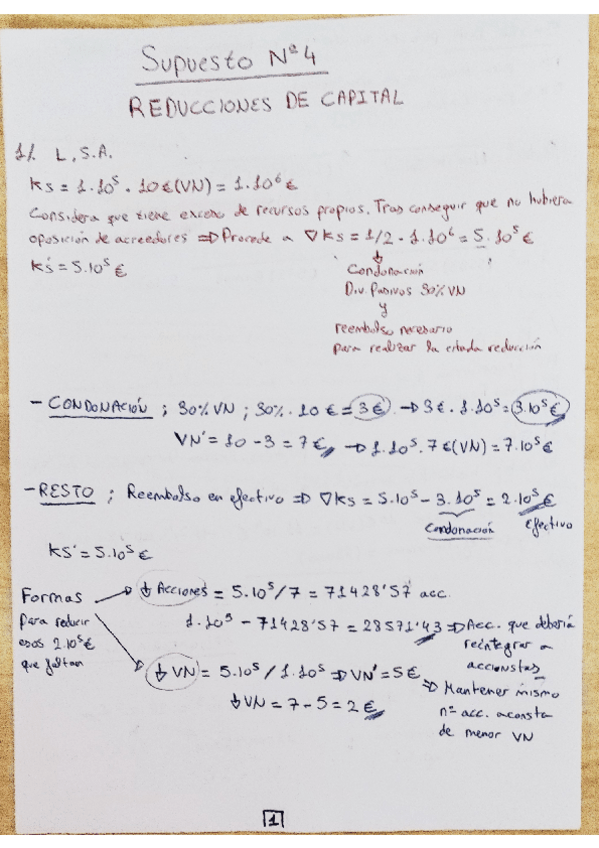 Supuesto Nº4
REDUCCIONES DE CAPITAL
1/. L, S.A.
KS = 1·10⁵ · 10€(VN) = 1·10⁶€
Considera que tiene exceso de recursos propios. Tras conseguir que no hubiera
oposición de acreedores ⇒ Procede a ∇KS = 1/2 · 1·10⁶ = 5·10⁵€
KS' = 5·10⁵€
↓
Condonación
Div. Pasivos 30% VN
y
reembolso necesario
para realizar la citada reducción
- CONDONACIÓN ; 30% VN ; 30% · 10€ = 3€ → 3€ · 1·10⁵ = 3·10⁵€
VN' = 10 - 3 = 7€ → 1·10⁵ · 7€(VN) = 7·10⁵€
- RESTO ; Reembolso en efectivo ⇒ ∇KS = 5·10⁵ - 3·10⁵ = 2·10⁵€
Condonación Efectivo
KS' = 5·10⁵€
Formas
para reducir
esos 2·10⁵€
que faltan
↓ Acciones = 5·10⁵/7 = 71428'57 acc.
1·10⁵ - 71428'57 = 28571'43 ⇒ Acc. que debería
reintegrar a
accionistas
↓ VN = 5·10⁵ / 1·10⁵ ⇒ VN' = 5€
↓ VN = 7 - 5 = 2€
⇒ Mantener mismo
nº acc. a costa
de menor VN
1